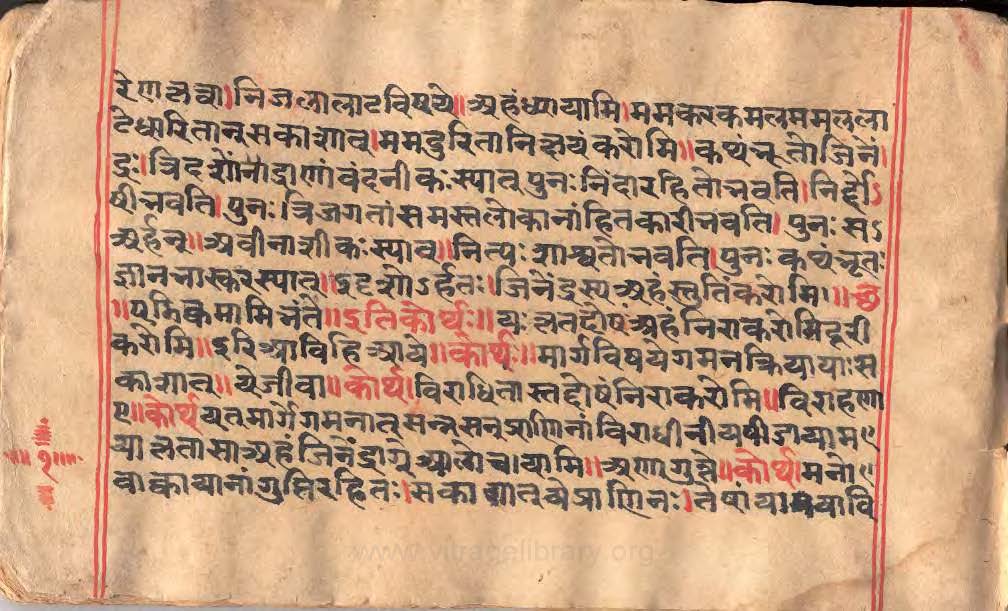 रेणलब्धा।निजलालाटविषये॥अहंध्यायामि।ममकरकमलसमललला
टेधारितानुसकाशात्।ममदुरितानिक्षयंकरोमि॥कथंभूतोजिनें।
द्रः।त्रिदशेंनाद्राणांवंदनीकःस्यात्पुनःनिंदारहितोभवति।निर्द्दोऽ
षीभवति।पुनःत्रिजगतांसमस्तलोकानांहितकारीभवति।पुनःसऽ
अर्हन्॥अवीनाशीकःस्यात्॥नित्यःशाश्वतोभवति।पुनःकथंभूतः
ज्ञानभास्करस्यात्।इदृशोऽर्हतः।जिनेंद्रस्यअहंस्तुतिंकरोमि॥॥छ
॥पडिकमामिभंते॥इतिकोर्थः॥यःलतद्दोषंअहंनिराकरोमिदूरी
करोमि॥इरिआविहिआये॥कोर्थः॥मार्गविषयेगमनक्रियायाःस
काशात्॥येजीवा॥कोर्थ।विराधितास्तद्दोषंनिराकरोमि॥विराहणा
ए॥कोर्थयत्मार्गेगमनात्सन्प्राणिनांविराधीनी
अहंजिनेंद्राग्रेआलोचायामि॥अणागुत्ते॥कोर्थ।मनो
वाक्कायानांगुप्तिरहितः।सकाशात्येप्राणिनः।तेषां
॥१॥
www.vitragelibrary.org